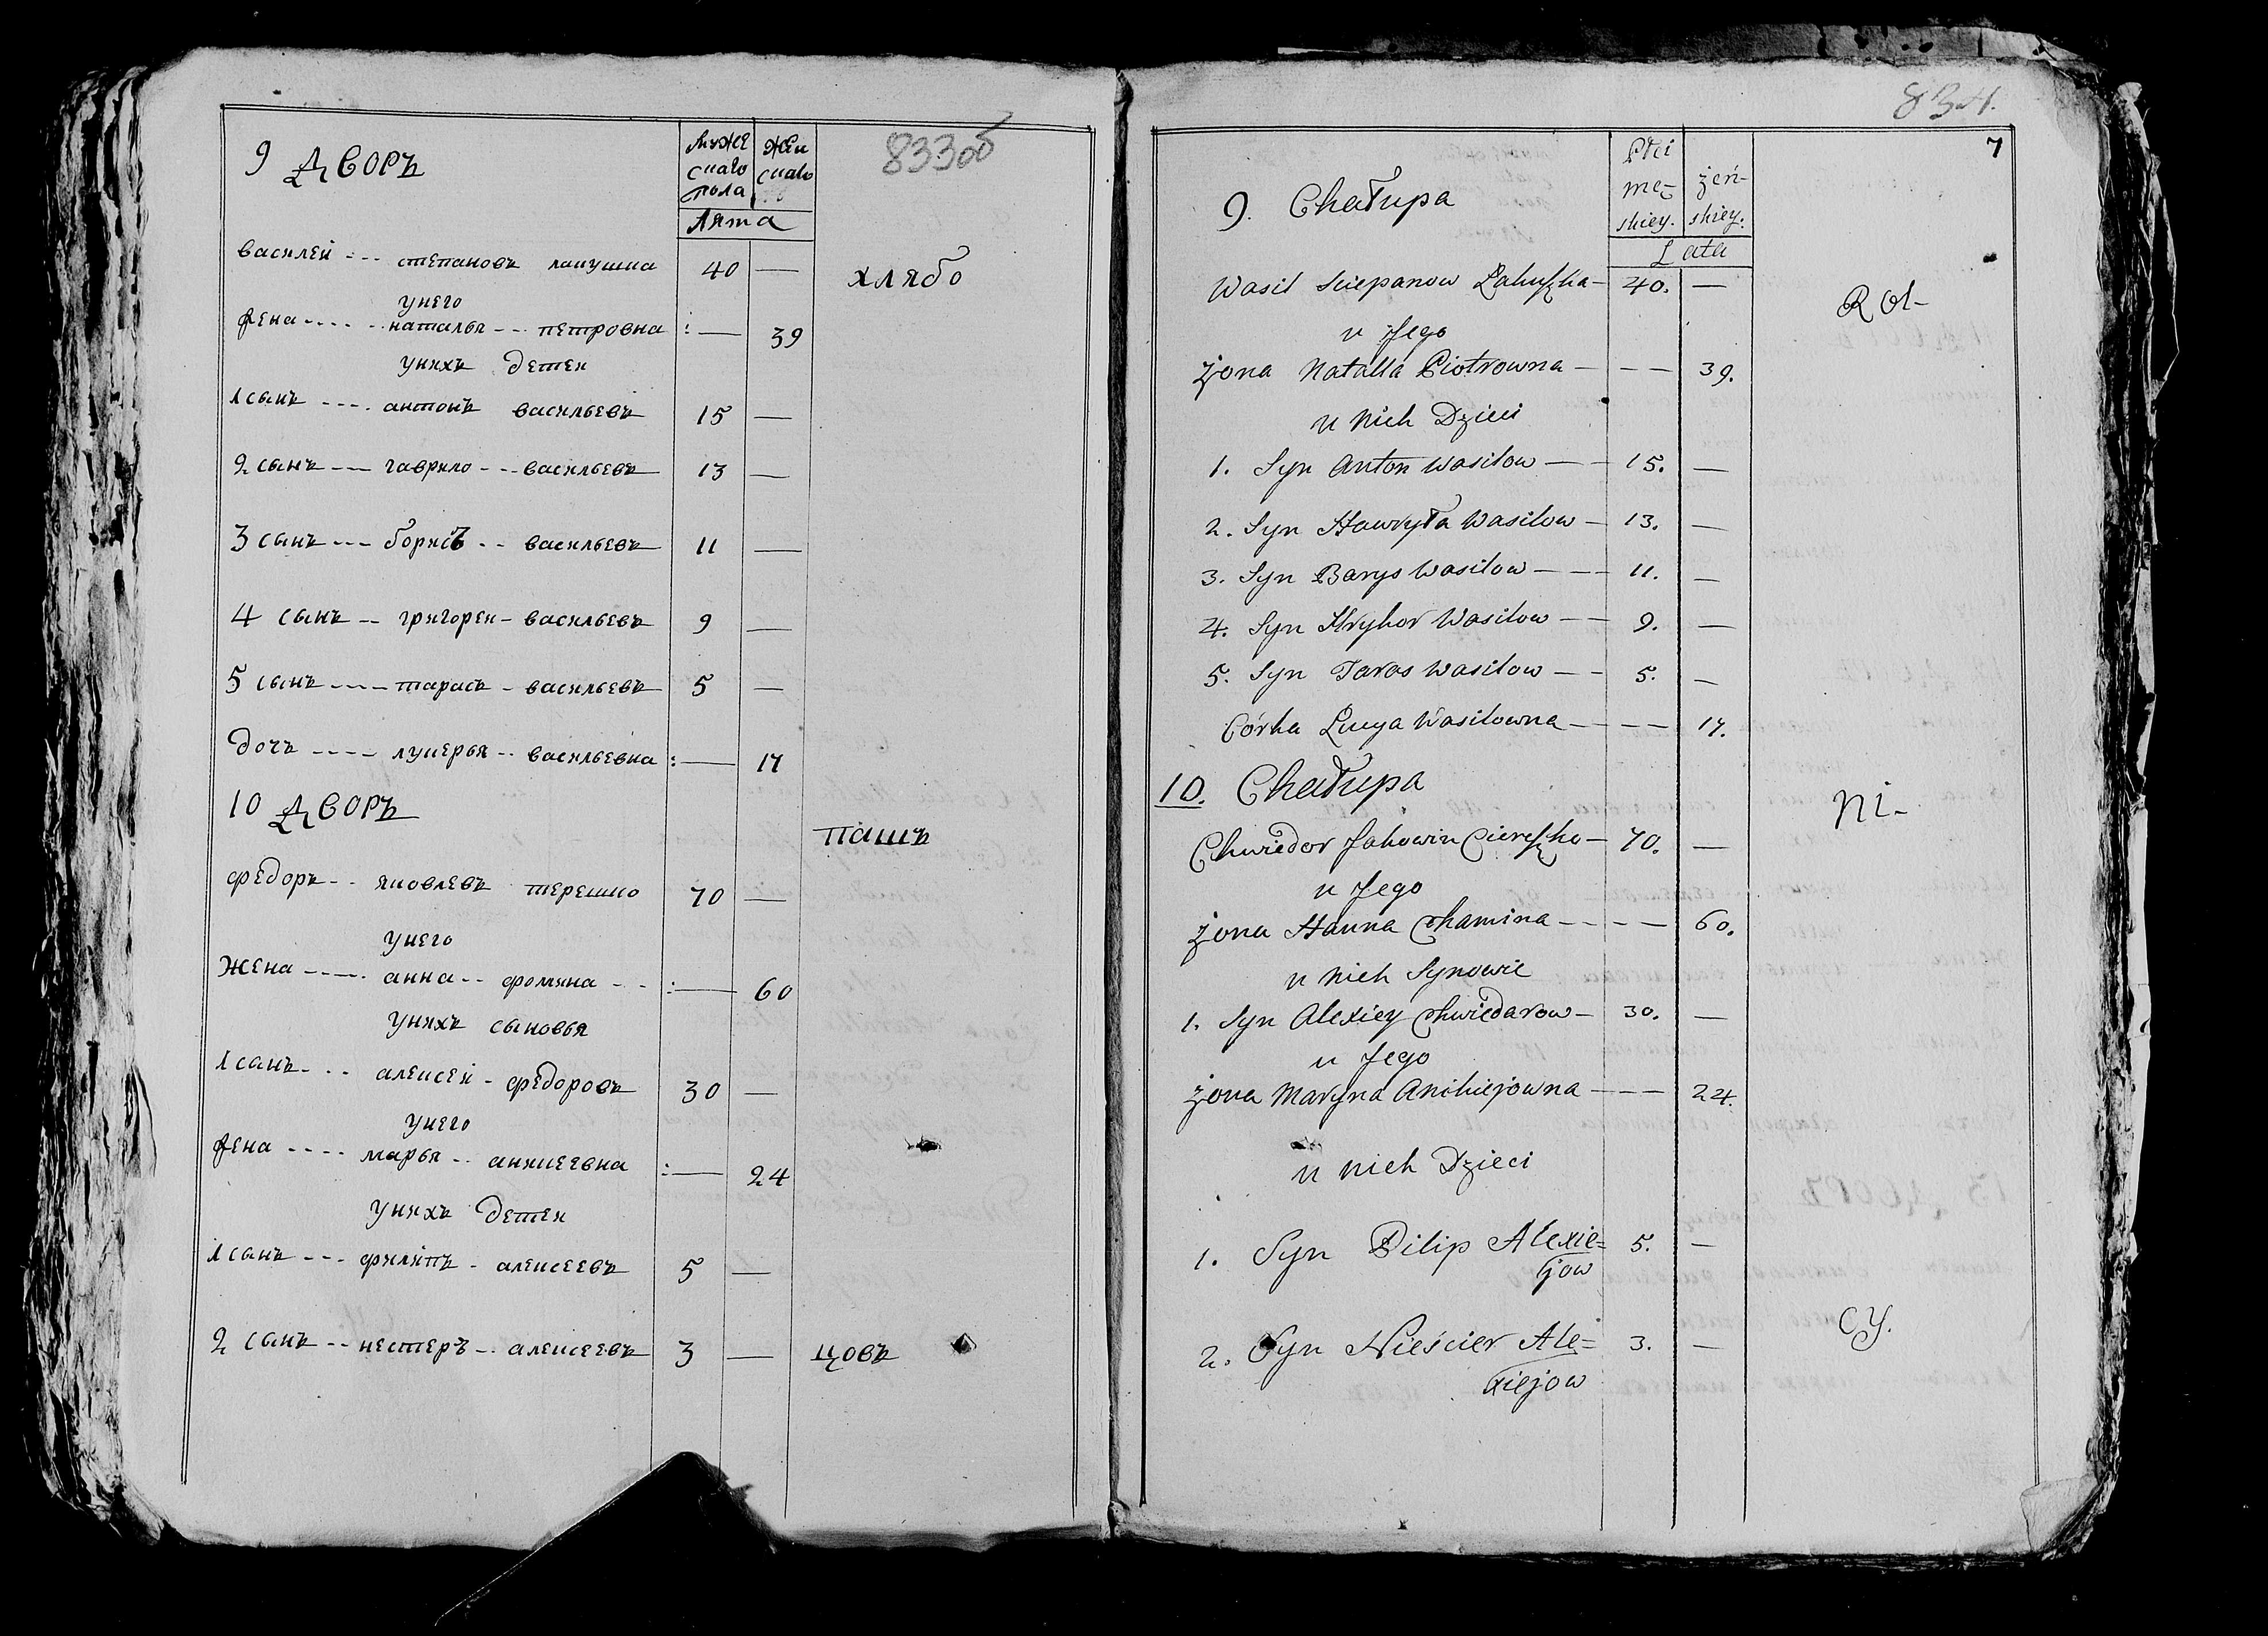 833об
9 Дворъ
муже
скаго
пола
жен
скаго
Лята
василей степановъ лапушка 40 —
хлябо
унего
жена наталья петровна — 39
унихъ детеи
1 сынъ антонъ васильевъ 15 —
2 сынъ гаврило васильевъ 13 —
3 сынъ борисъ васильевъ 11 —
4 сынъ григореи васильевъ 9 —
5 сынъ тарасъ васильевъ 5 —
дочь лукерья васильевна — 17
10 Дворъ
пашъ
федоръ яковлевъ терешко 70 —
унего
жена анна фомина — 60
унихъ сыновья
1 сынъ алексей федоровъ 30 —
унего
жена марья аникеевна — 24
унихъ детеи
1 сынъ филипъ алексеевъ 5 —
2 сынъ нестеръ алексеевъ 3 —
цовъ
834.
7
9. Chałupa
Płci
mę-
skiey.
żeń-
skiey.
Lata
Wasil Sciepanow Łakuszka — 40. —
Rol-
u Jego
żona Natalla Piotrowna — — — 39.
u Nich Dzieci
1. Syn Anton Wasilow — — 15. —
2. Syn Hawryła Wasilow — 13. —
3. Syn Barys Wasilow — — 11. —
4. Syn Hryhor Wasilow — — 9. —
5. Syn Taras Wasilow — — 5. —
Córka Łucya Wasilowna — — — 17.
10. Chałupa
Ni-
Chwiedor Jakowin Ciereszko — 70. —
u Jego
żona Hanna Chamina — — — 60.
u Nich Synowie
1. Syn Alexiey Chwiedarow — 30. —
u Jego
żona Maryna Anikiejowna — — — 24.
u Nich Dzieci
1. Syn Pilip Alexie= 5. —
jow
2. Syn Nieścier Ale= 3. —
xiejow
cy.